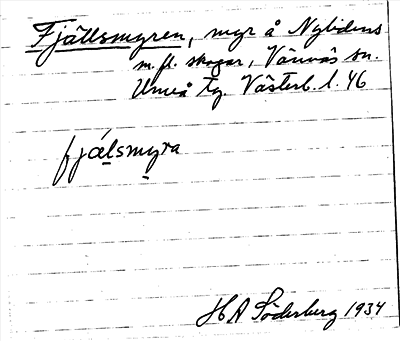 Fjällsmyren, myr å Nylidens
m. fl. skogar, Vännäs sn.
Umeå tg. Västerb. l. 46
fjälsmyra
H A Söderberg 1934